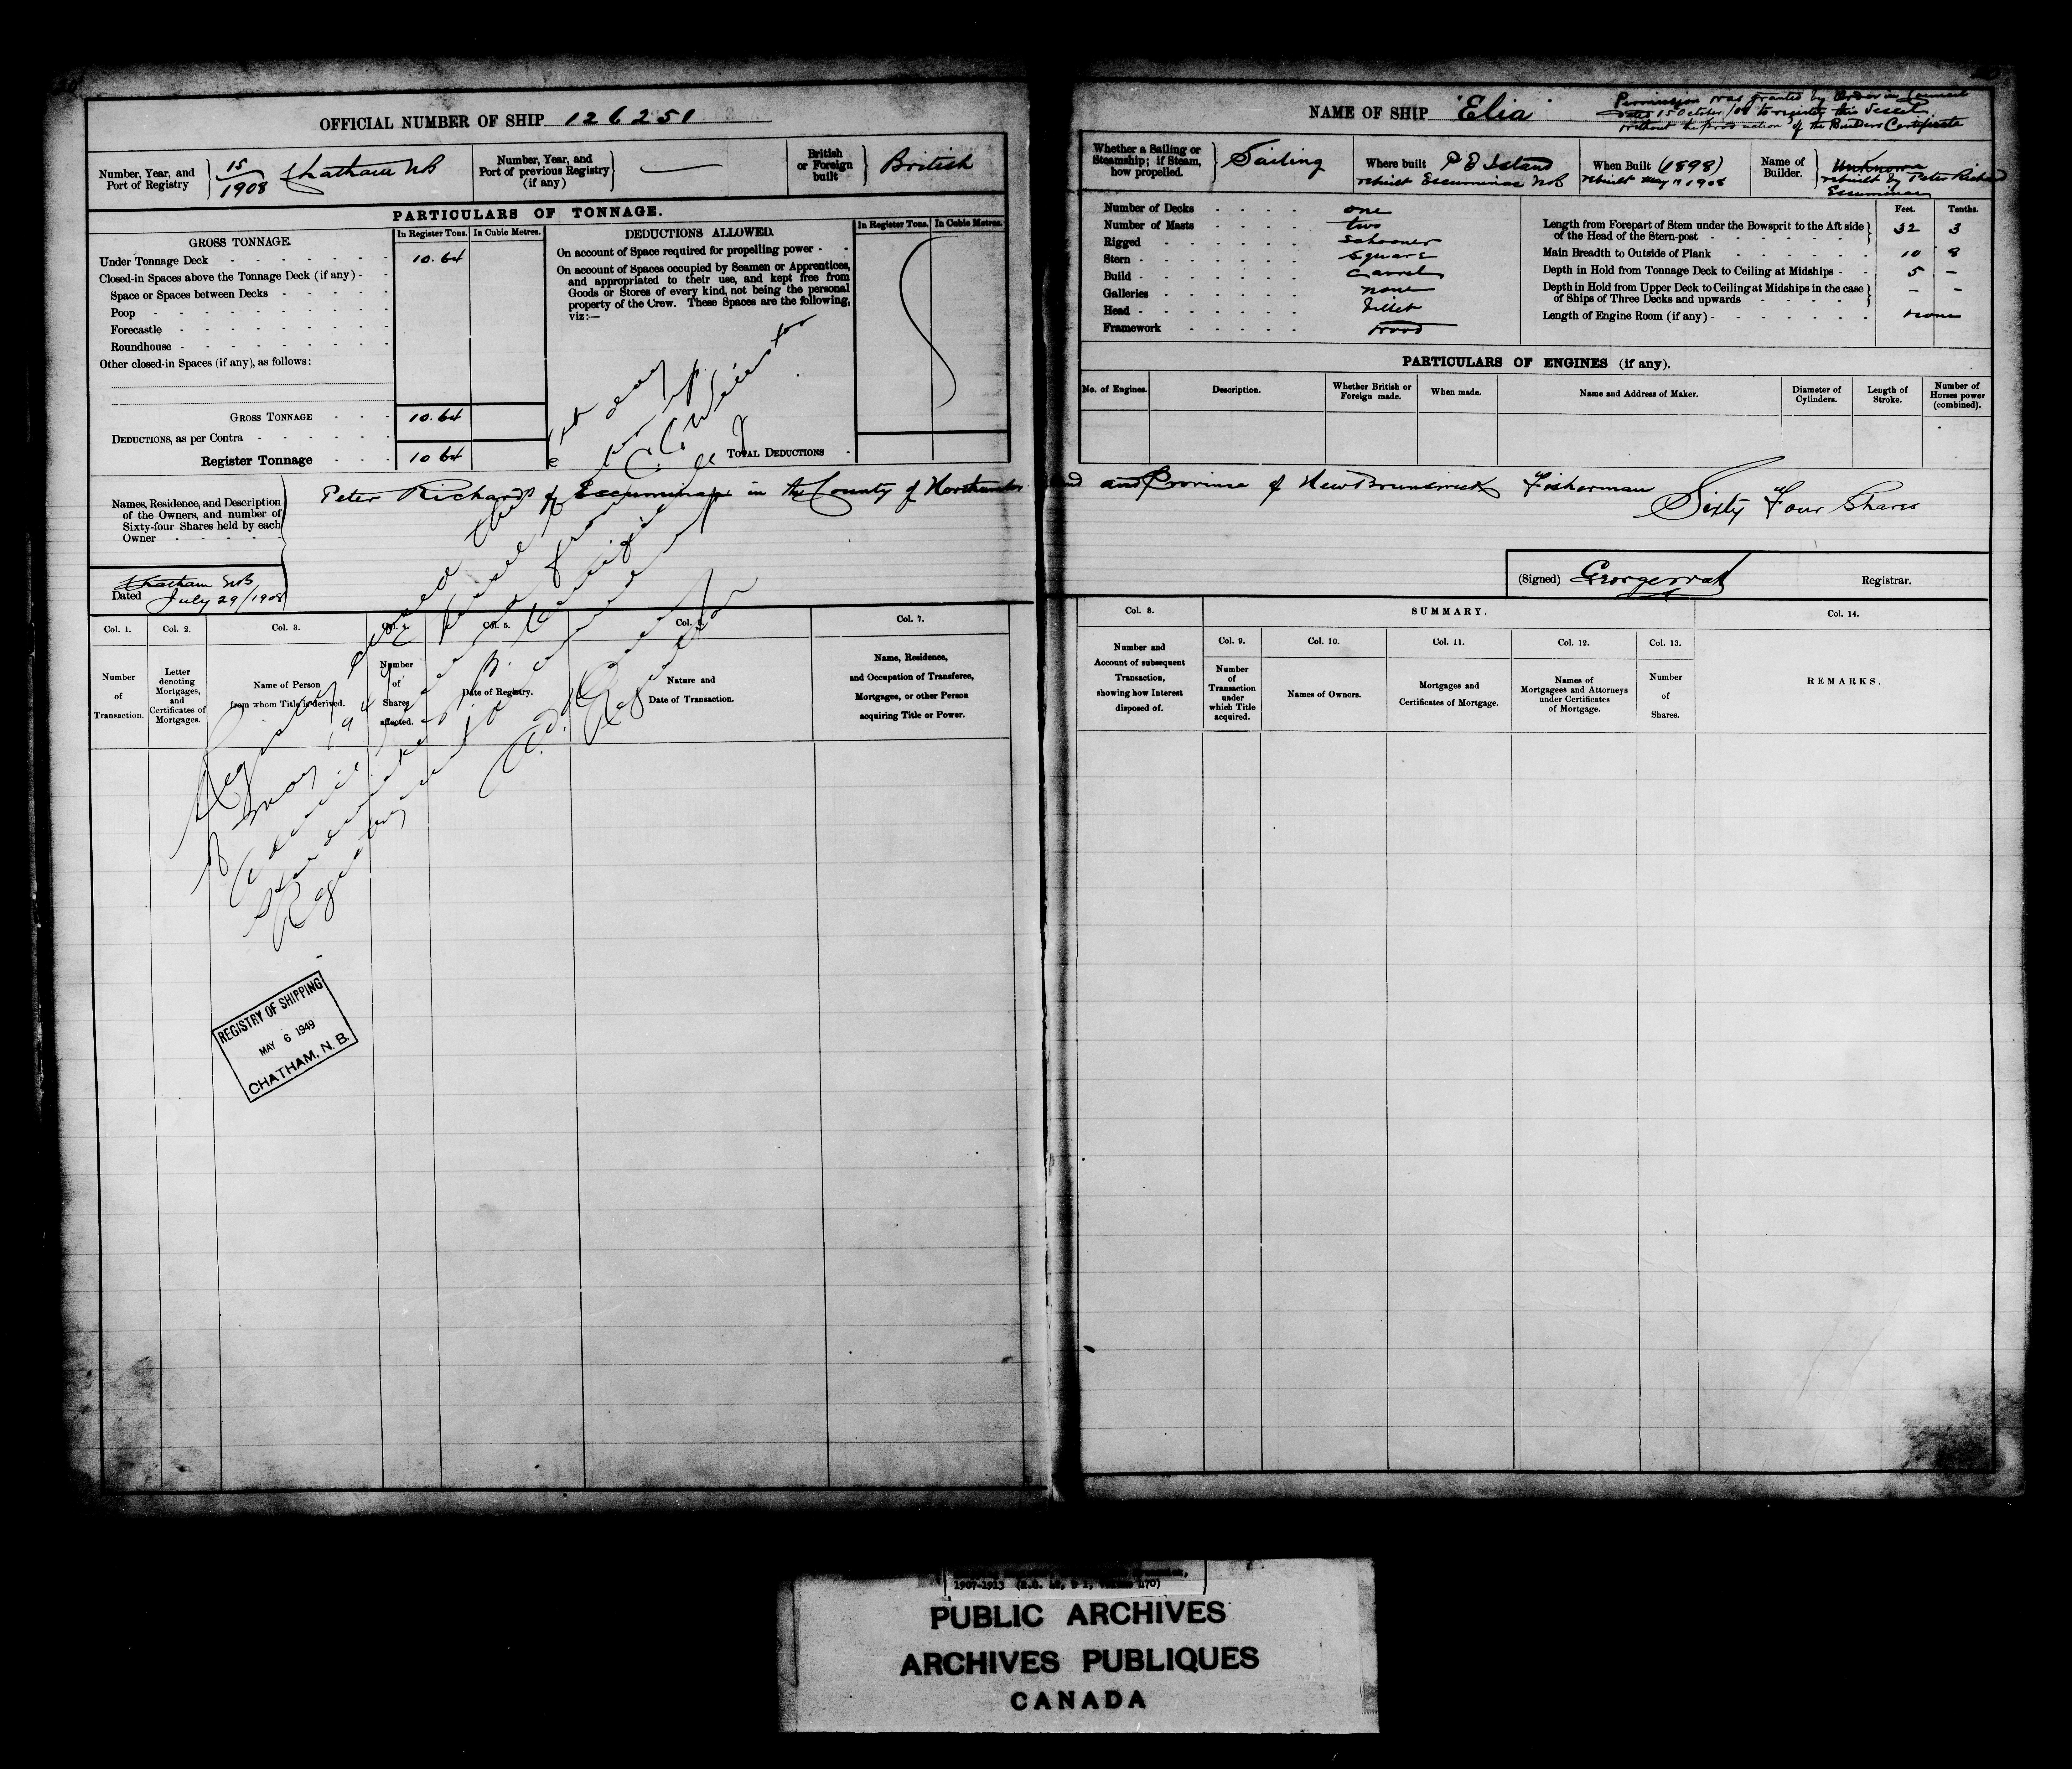 OFFICIAL NUMBER OF SHIP 126251
Number, Year, and
Port of Registry
15
1908
Chatham NB
Number, Year, and
Port of previous Registry
(if any)
British
or Foreign
built
British
PARTICULARS OF TONNAGE.
GROSS TONNAGE.
In Register Tons.
In Cubic Metres.
Under Tonnage Deck
10.64
Closed-in Spaces above the Tonnage Deck (if any)
Space or Spaces between Decks
Poop
Forecastle
Roundhouse
Other closed-in Spaces (if any), as follows:
GROSS TONNAGE
10.64
DEDUCTIONS, as per Contra
Register Tonnage
10 64
DEDUCTIONS ALLOWED.
In Register Tons.
In Cubic Metres.
On account of Space required for propelling power
On account of Spaces occupied by Seamen or Apprentices,
and appropriated to their use, and kept free from
Goods or Stores of every kind, not being the personal
property of the Crew. These Spaces are the following,
viz:—
TOTAL DEDUCTIONS
Names, Residence, and Description
of the Owners, and number of
Sixty-four Shares held by each
Owner
Peter Richards of Escuminac in the County of Northumber
Chatham NB
Dated July 29/1908
Registry closed this
6 day
of May 1949
vessel
Evidence
from
C.C. Winston
Certificate of
Registry
Registrar
Col. 1.
Number
of
Transaction.
Col. 2.
Letter
denoting
Mortgages,
and
Certificates of
Mortgages.
Col. 3.
Name of Person
from whom Title is derived.
Number
of
Shares
affected.
Col. 5.
Date of Registry.
Nature and
Date of Transaction.
Col. 7.
Name, Residence,
and Occupation of Transferee,
Mortgages, or other Person
acquiring Title or Power.
REGISTRY OF SHIPPING
MAY 6 1949
CHATHAM, N. B.
NAME OF SHIP "Elia"
Permission was granted by Order in Council
dated 15 October/08 to register this Vessel
without the production of the Builders Certificate
Whether a Sailing or
Steamship; if Steam,
how propelled.
Sailing
Where built P E Island
rebuilt Escuminac NB
When Built (1898)
rebuilt May 1908
Name of
Builder.
Unknown
rebuilt by Peter Richard
Escuminac
Number of Decks one
Number of Masts two
Rigged schooner
Stern square
Build carvel
Galleries none
Head fillet
Framework wood
Feet.
Tenths.
Length from Forepart of Stem under the Bowsprit to the Aft side
of the Head of the Stern-post
32 3
Main Breadth to Outside of Plank 10 8
Depth in Hold from Tonnage Deck to Ceiling at Midships 5 –
Depth in Hold from Upper Deck to Ceiling at Midships in the case
of Ships of Three Decks and upwards – –
Length of Engine Room (if any) none
PARTICULARS OF ENGINES (if any).
No. of Engines.
Description.
Whether British or
Foreign made.
When made.
Name and Address of Maker.
Diameter of
Cylinders.
Length of
Stroke.
Number of
Horses power
(combined).
land and Province of New Brunswick Fisherman
Sixty Four Shares
(Signed)
Registrar.
Col. 8.
Number and
Account of subsequent
Transaction,
showing how Interest
disposed of.
SUMMARY.
Col. 9.
Number
of
Transaction
under
which Title
acquired.
Col. 10.
Names of Owners.
Col. 11.
Mortgages and
Certificates of Mortgage.
Col. 12.
Names of
Mortgagees and Attorneys
under Certificates
of Mortgage.
Col. 13.
Number
of
Shares.
Col. 14.
REMARKS.
PUBLIC ARCHIVES
ARCHIVES PUBLIQUES
CANADA